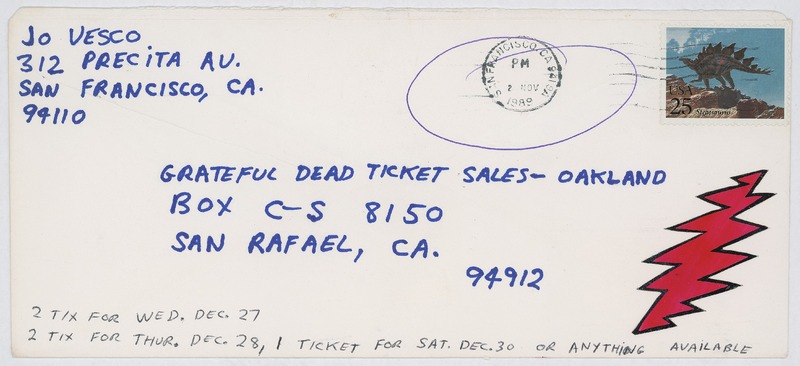 Jo VESCO
312 PRECITA AV.
SAN FRANCISCO, CA.
94110
SAN FRANCISCO, CA
PM
2 NOV
1989
USA
25
Stegosaurus
GRATEFUL DEAD TICKET SALES- OAKLAND
BOX C-S 8150
SAN RAFAEL, CA.
94912
2 TIX FOR WED. DEC. 27
2 TIX FOR THUR. DEC. 28, 1 TICKET FOR SAT. DEC. 30 OR ANYTHING AVAILABLE